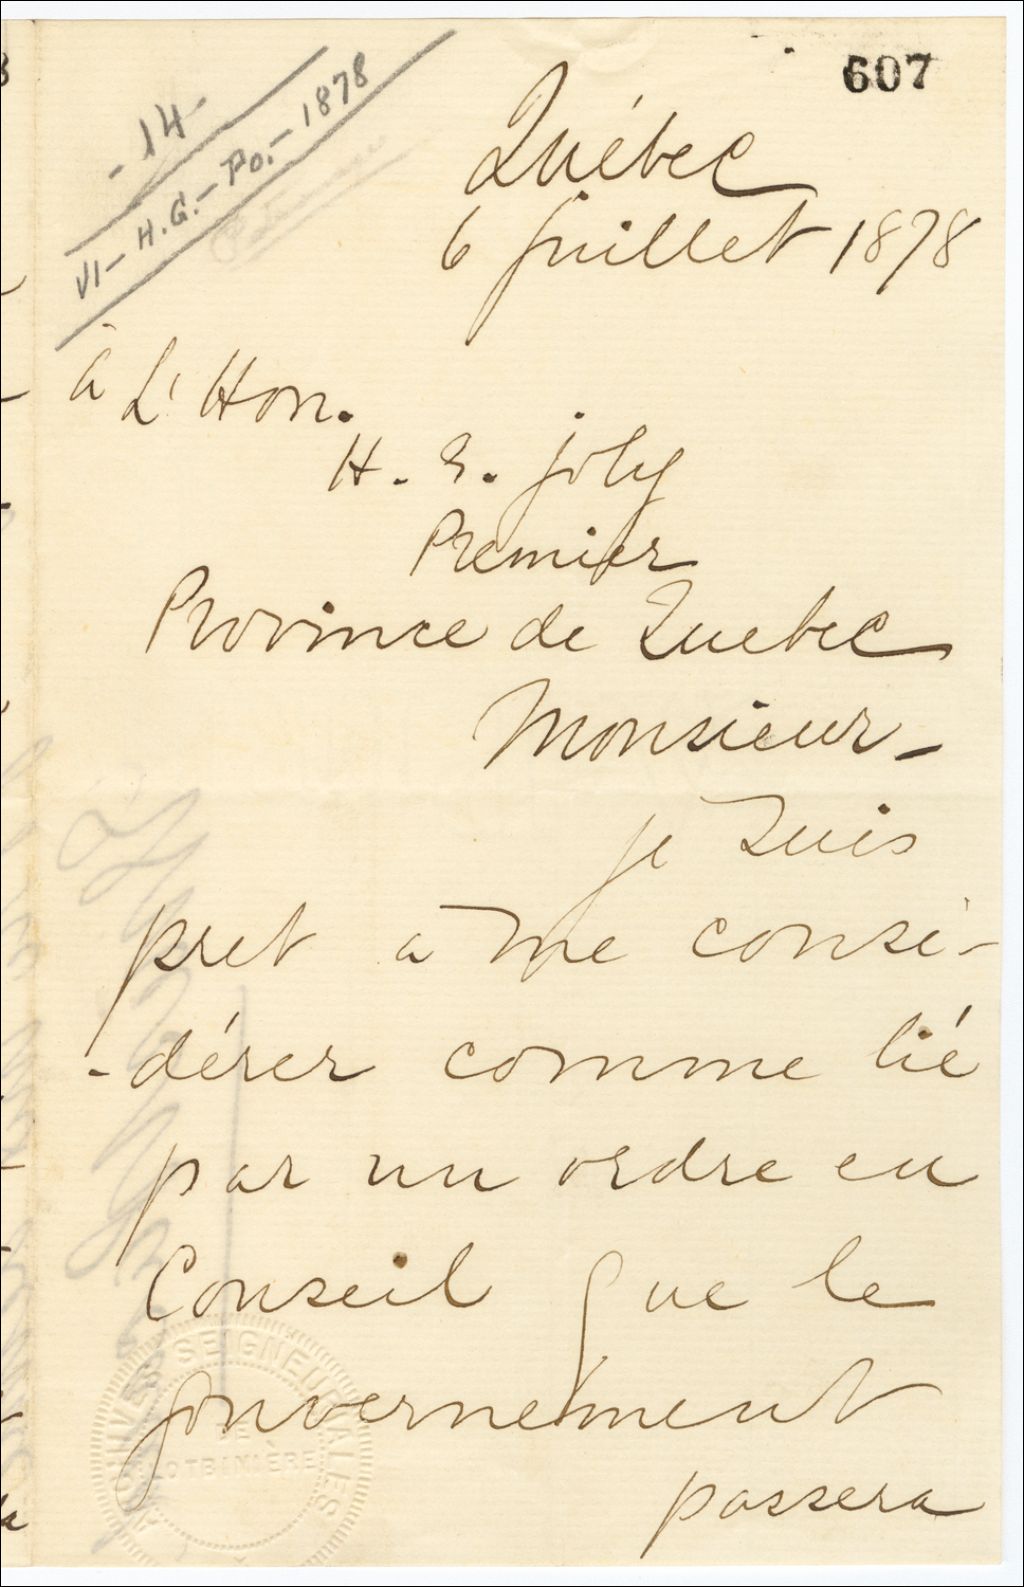 607
- 14 -
VI - H.G. - Po. - 1878
Québec
6 juillet 1878
à L'Hon.
H. G. Joly
Premier
Province de Quebec
Monsieur -
je suis
pret a me consi-
-dérer comme lié
par un ordre en
Conseil que le
gouvernement
passera
ARCHIVES SEIGNEURIALES
DE
LOTBINIÈRE